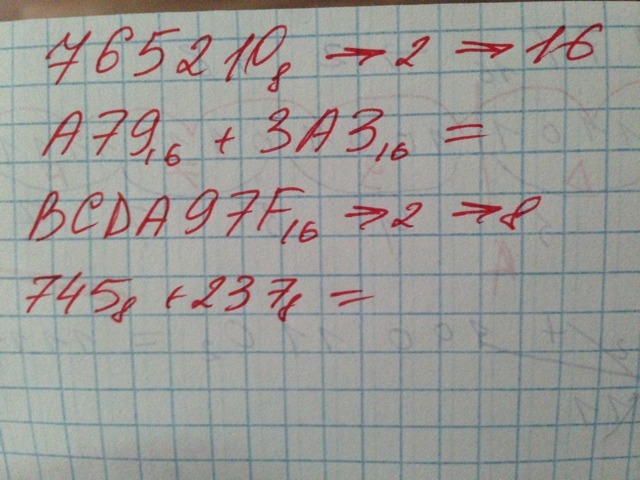 765210₈ → 2 → 16
A79₁₆ + 3A3₁₆ =
BCDA97F₁₆ → 2 → 8
745₈ + 237₈ =